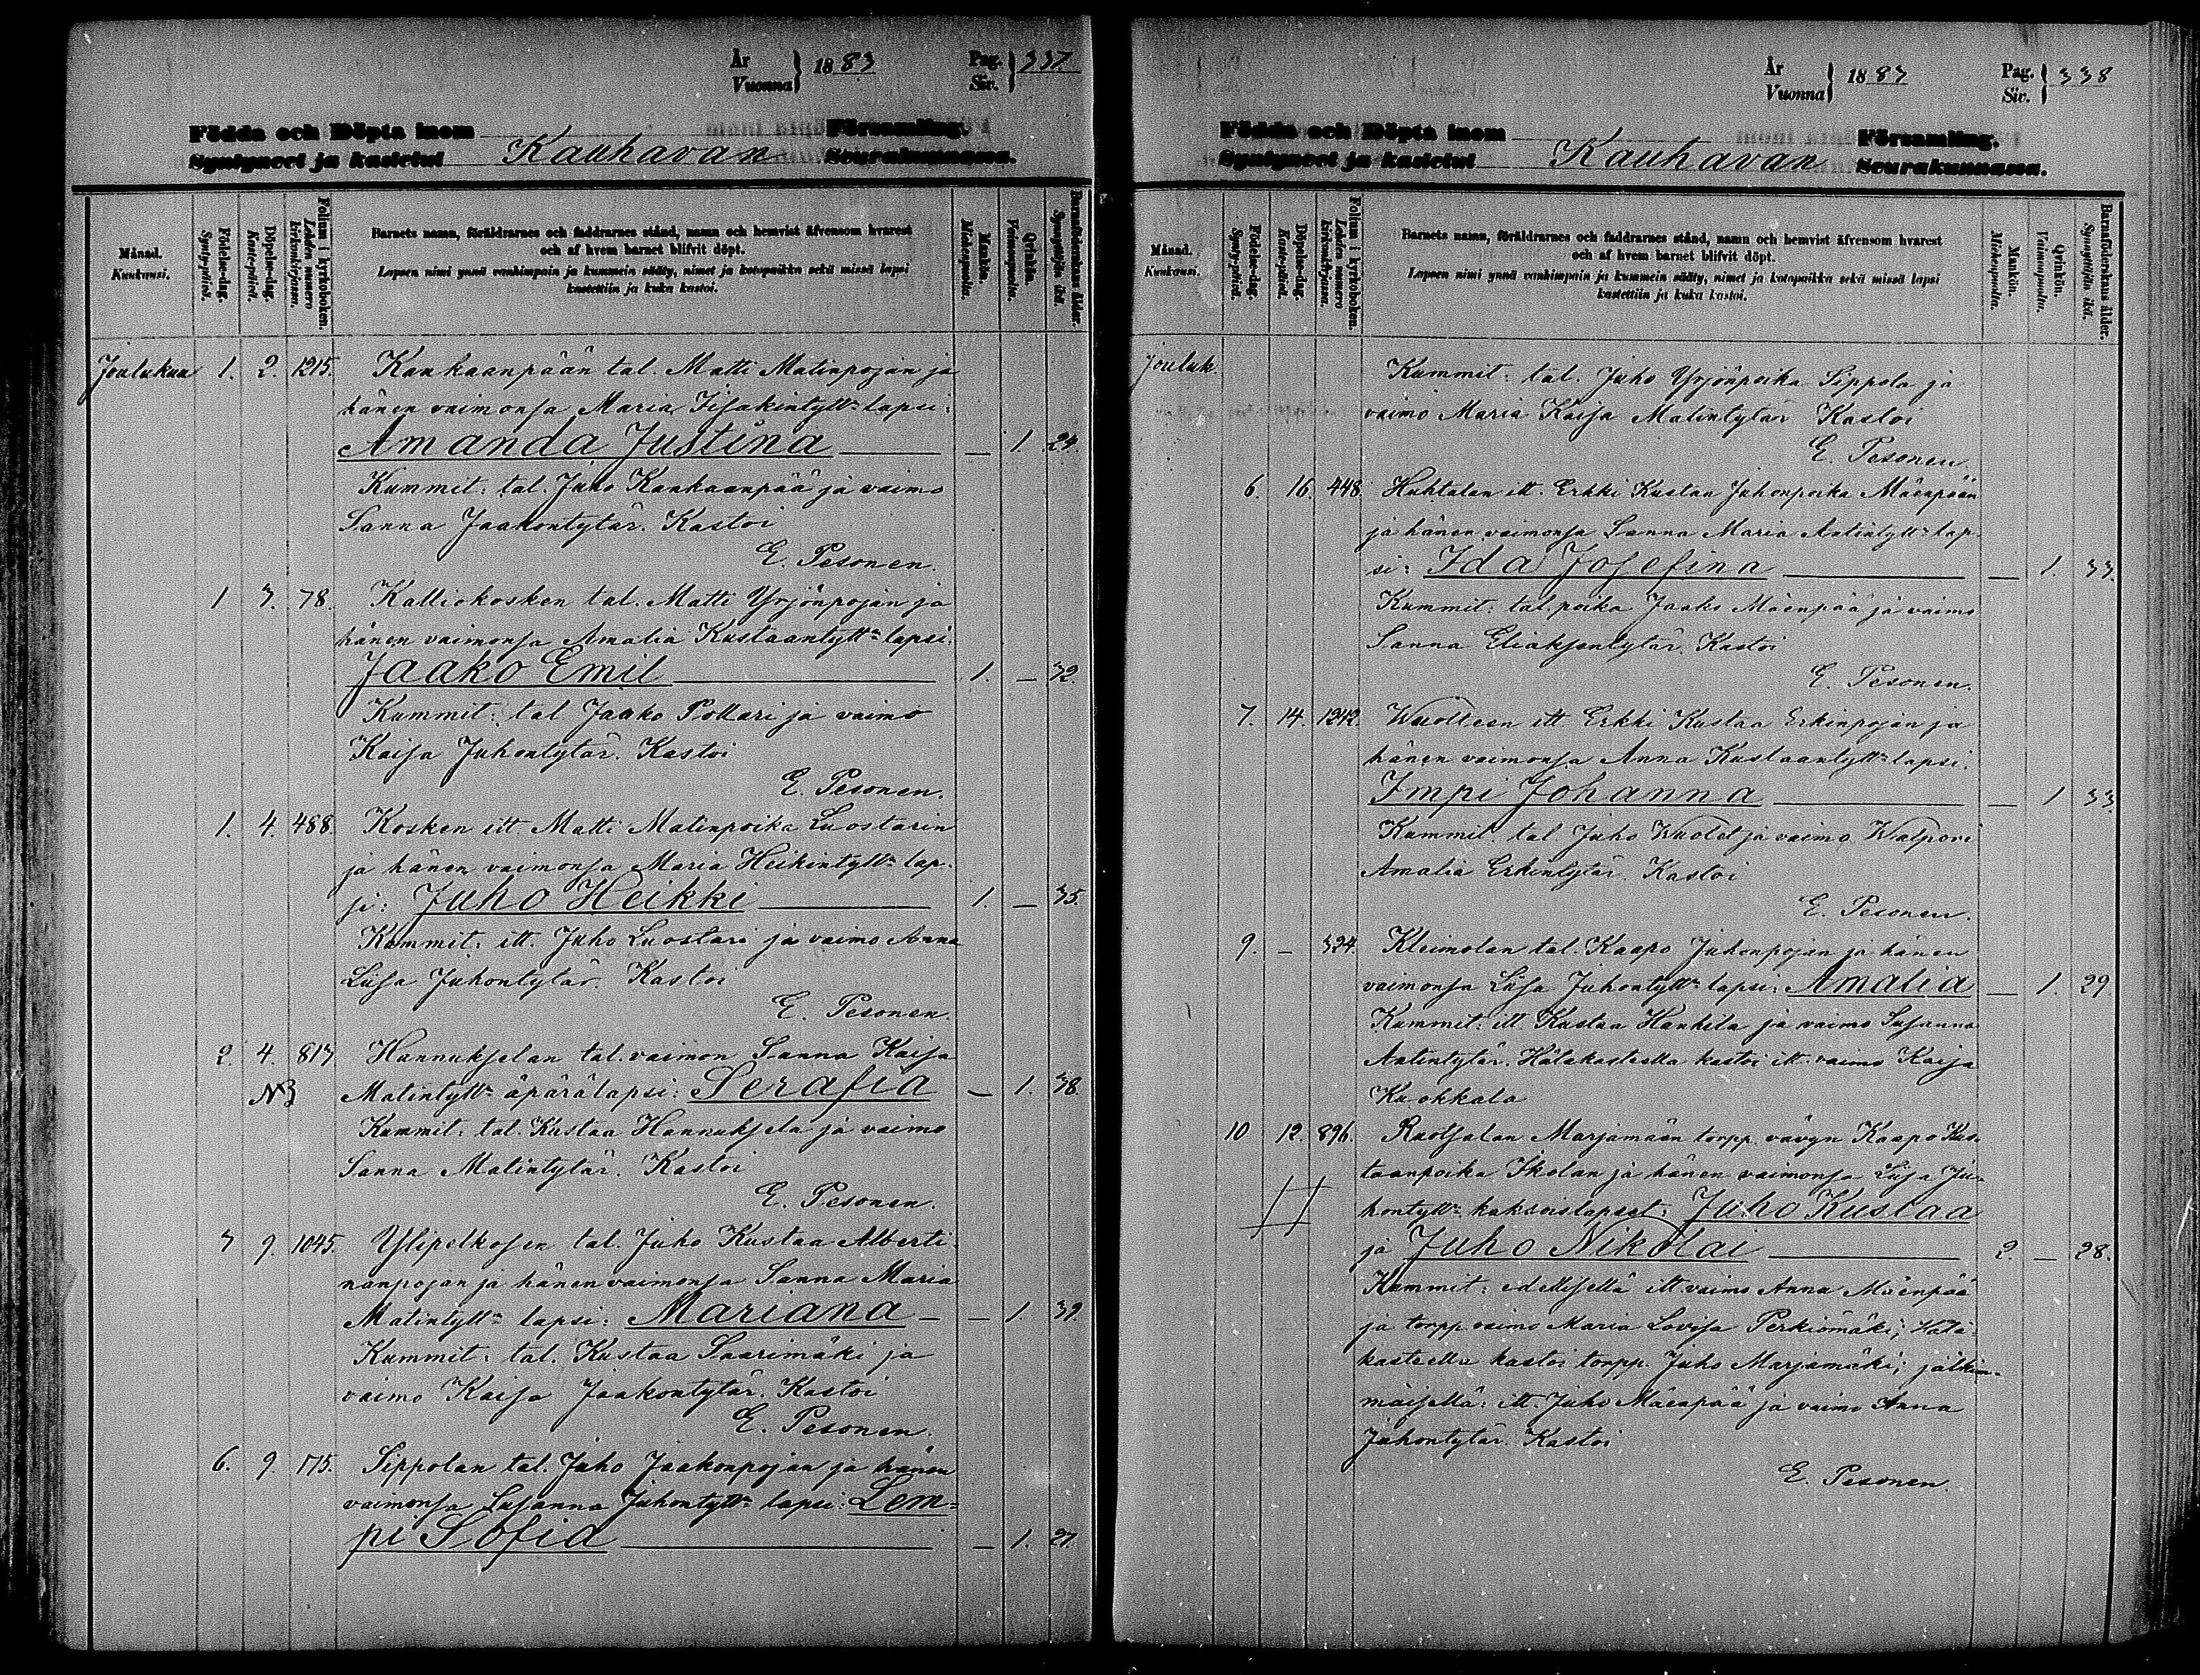 År 1883 Pag. 337.
Vuonna Siv.
Födda och Döpta inom Kauhavan Församling.
Syntyneet ja kastetut Seurakunnassa.
Månad. Kuukausi.
Födelse-dag. Synty-päivä.
Döpelse-dag. Kaste-päivä.
Folium i kyrkoboken. Lehden numero kirkonkirjassa.
Barnets namn, föräldrarnes och faddrarnes stånd, namn och hemvist äfvensom hvarest
och af hvem barnet blifvit döpt.
Lapsen nimi ynnä vanhimpain ja kummein sääty, nimet ja kotopaikka sekä missä lapsi
kastettiin ja kuka kastoi.
Mankön. Miehenpuolta.
Qvinkön. Vaimonpuolta.
Barnaföderskans ålder. Synnyttäjän ikä.
Joulukuu 1. 2. 1215. Kankaanpään tal. Matti Matinpojan ja
hänen vaimonsa Maria Iisakintytt:n lapsi:
Amanda Justina — 1. 24.
Kummit: tal. Juho Kankaanpää ja vaimo
Sanna Jaakontytär. Kastoi
E. Pesonen.
1 3. 78. Kalliokosken tal. Matti Yrjönpojan ja
hänen vaimonsa Amalia Kustaantytt:n lapsi:
Jaako Emil 1. — 32.
Kummit: tal Jaako Pollari ja vaimo
Kaisa Juhontytär. Kastoi
E. Pesonen.
1. 4. 488. Kosken itt. Matti Matinpoika Luostarin
ja hänen vaimonsa Maria Heikintytt:n lap-
si: Juho Heikki 1. — 35.
Kummit: itt. Juho Luostari ja vaimo Anna
Liisa Juhontytär. Kastoi
E. Pesonen.
2. 4. 813 Hannukselan tal. vaimon Sanna Kaisa
NB Matintytt:n äpärälapsi: Serafia — 1. 38.
Kummit: tal. Kustaa Hannuksela ja vaimo
Sanna Matintytär. Kastoi
E. Pesonen.
3 9. 1045. Ylipelkosen tal. Juho Kustaa Alberti-
nanpojan ja hänen vaimonsa Sanna Maria
Matintytt:n lapsi: Mariana — — 1. 39.
Kummit: tal. Kustaa Saarimäki ja
vaimo Kaisa Jaakontytär. Kastoi
E. Pesonen.
6. 9. 175. Sippolan tal. Juho Jaakonpojan ja hänen
vaimonsa Susanna Juhontytt:n lapsi: Lem-
pi Sofia — 1. 27.
År 1883 Pag. 338
Vuonna Siv.
Födda och Döpta inom Kauhavan Församling.
Syntyneet ja kastetut Seurakunnassa.
Månad. Kuukausi.
Födelse-dag. Synty-päivä.
Döpelse-dag. Kaste-päivä.
Folium i kyrkoboken. Lehden numero kirkonkirjassa.
Barnets namn, föräldrarnes och faddrarnes stånd, namn och hemvist äfvensom hvarest
och af hvem barnet blifvit döpt.
Lapsen nimi ynnä vanhimpain ja kummein sääty, nimet ja kotopaikka sekä missä lapsi
kastettiin ja kuka kastoi.
Mankön. Miehenpuolta.
Qvinkön. Vaimonpuolta.
Barnaföderskans ålder. Synnyttäjän ikä.
Jouluk. Kummit: tal. Juho Yrjönpoika Sippola ja
vaimo Maria Kaisa Matintytär Kastoi
E. Pesonen
6. 16. 448. Huhtalan itt. Erkki Kustaa Juhonpoika Mäenpään
ja hänen vaimonsa Sanna Maria Antintytt:n lap-
si: Ida Josefina — 1. 33.
Kummit: tal. poika Jaako Mäenpää ja vaimo
Sanna Eliaksentytär. Kastoi
E. Pesonen.
7. 14. 1242. Wuolteen itt Erkki Kustaa Erkinpojan ja
hänen vaimonsa Anna Kustaantytt:n lapsi:
Impi Johanna — 1 33
Kummit: tal Juho Wuolet ja vaimo Walpori
Amalia Erkintytär. Kastoi
E. Pesonen.
9. — 324. Kleimolan tal. Kaapo Juhonpojan ja hänen
vaimonsa Liisa Juhontytt:n lapsi: Amalia — 1. 29
Kummit: itt Kustaa Hankila ja vaimo Susanna
Antintytär. Hätäkasteella kastoi itt. vaimo Kaisa
Kuokkala
10 12. 896. Ruotsalan Marjamäen torpp. vävyn Kaapo Kus-
taanpoika Ikolan ja hänen vaimonsa Liisa Ju-
hontytt:n kaksoislapset: Juho Kustaa
ja Juho Nikolai 2. — 28.
Kummit: edellisellä itt. vaimo Anna Mäenpää
ja torpp. vaimo Maria Lovisa Perkiömäki; Hätä-
kasteella kastoi torpp. Juho Marjamäki; jälkim-
mäisellä: itt. Juho Mäenpää ja vaimo Anna
Juhontytär. Kastoi
E. Pesonen.